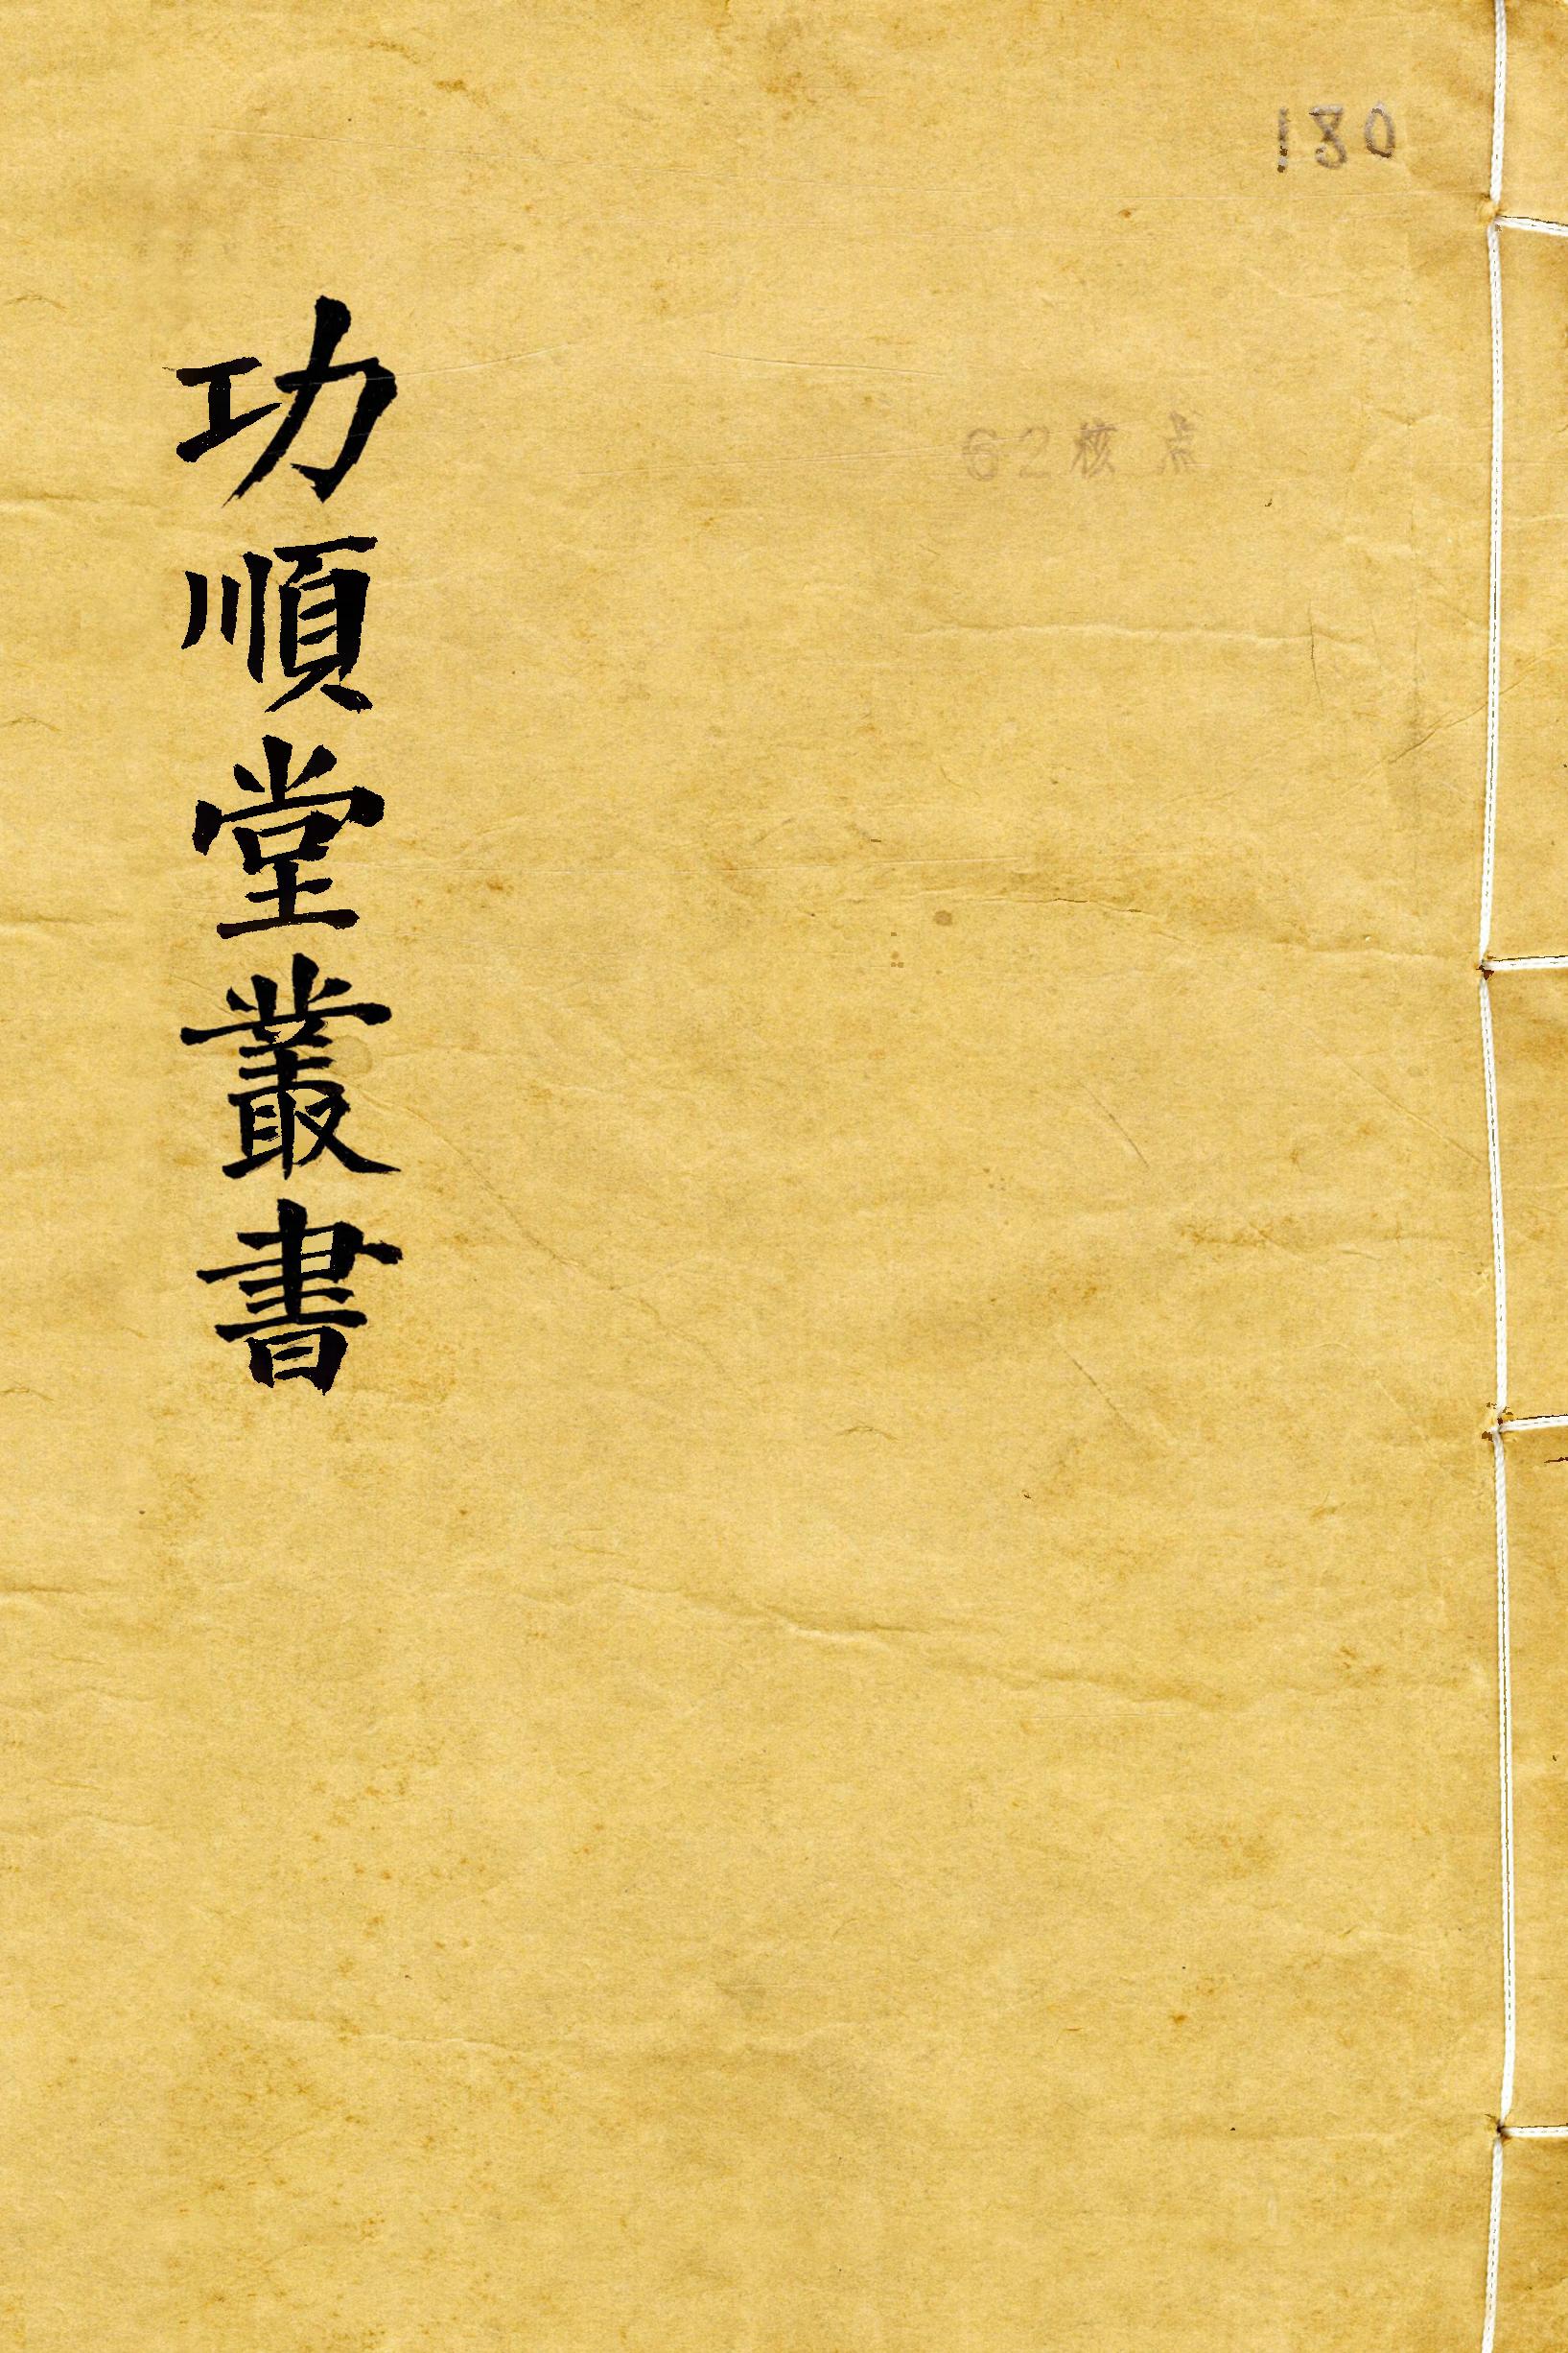 180
62核点
功順堂叢書